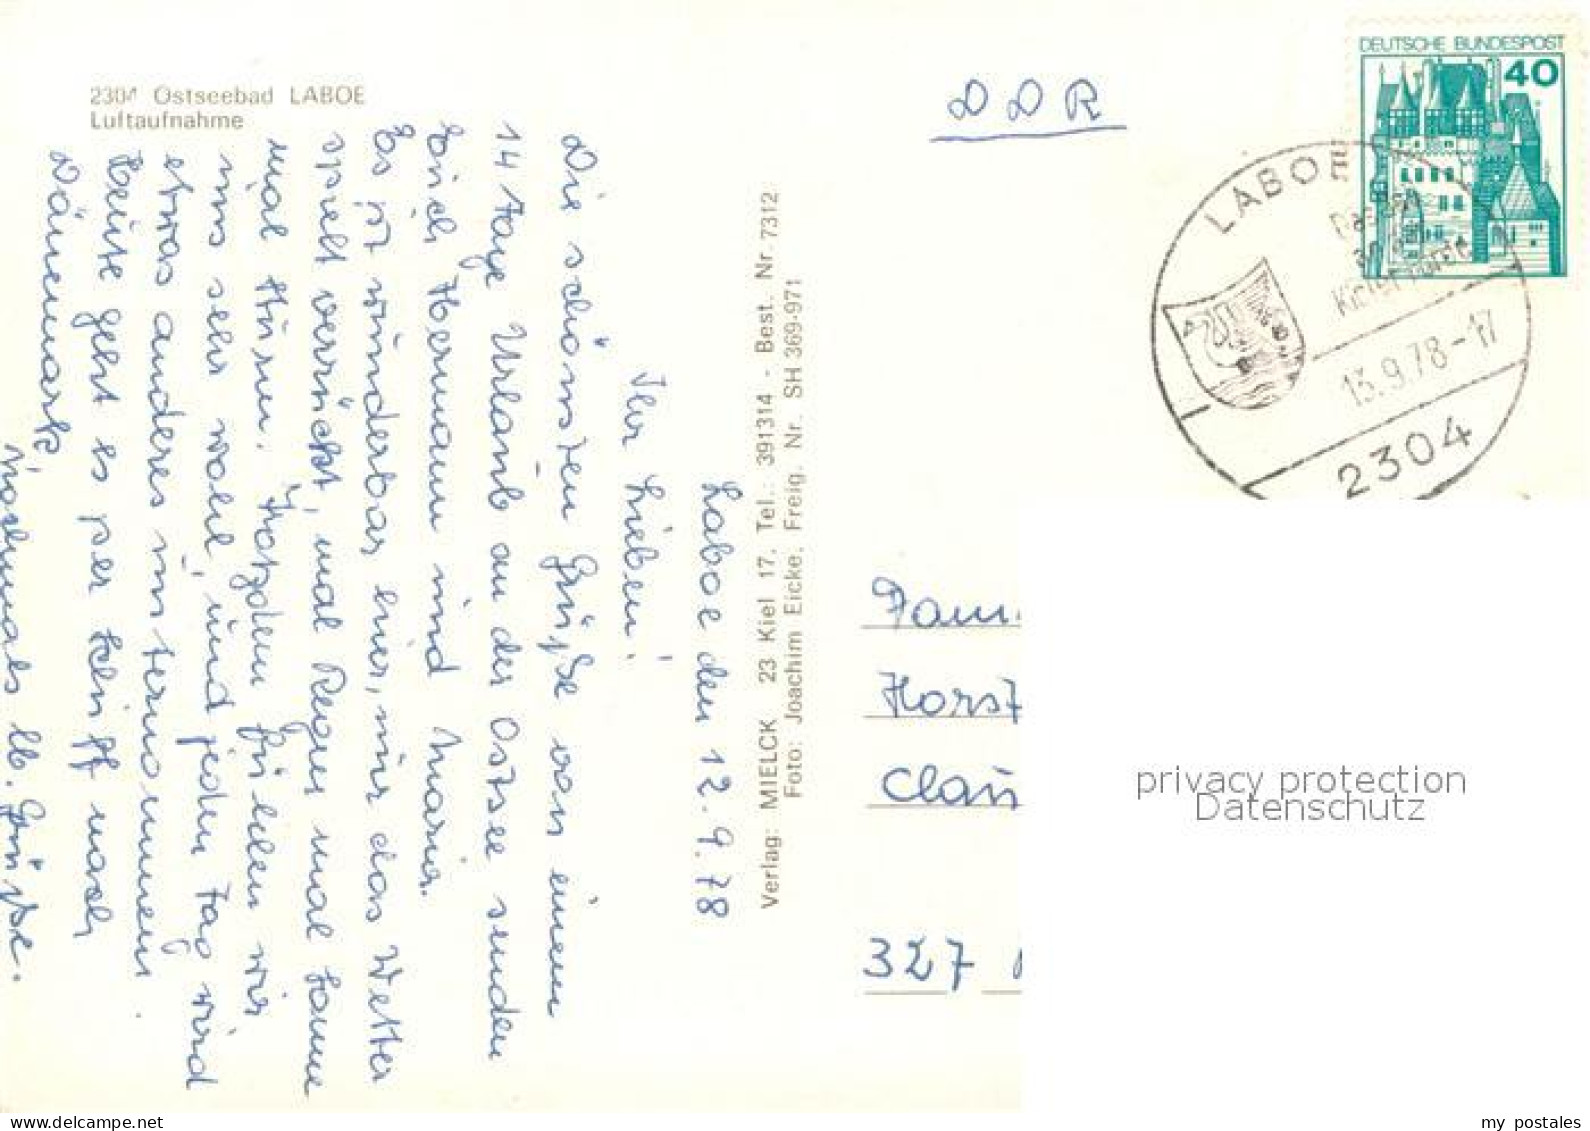 2304 Ostseebad LABOE
Luftaufnahme
Laboe den 12.9.78
Ihr Lieben!
Die schönsten Grüße von einem
14 tage Urlaub an der Ostsee senden
Erich Hermann und Maria.
Es ist wunderbar hier, nur das Wetter
spielt verrückt, mal Regen mal Sonne
mal Sturm. Trotzdem fühlen wir
uns sehr wohl, und jeden Tag wird
etwas anderes unternommen.
Heute geht es per Schiff nach
Dänemark.
Nochmals lb. Grüße.
Verlag: MIELCK 23 Kiel 17, Tel.: 391314 - Best. Nr. 7312
Foto: Joachim Eicke, Freig. Nr. SH 369-971
DDR
DEUTSCHE BUNDESPOST
40
LABOE
Kieler Förde
13.9.78-17
2304
Fam.
Horst
Clau
327
privacy protection
Datenschutz
my postales